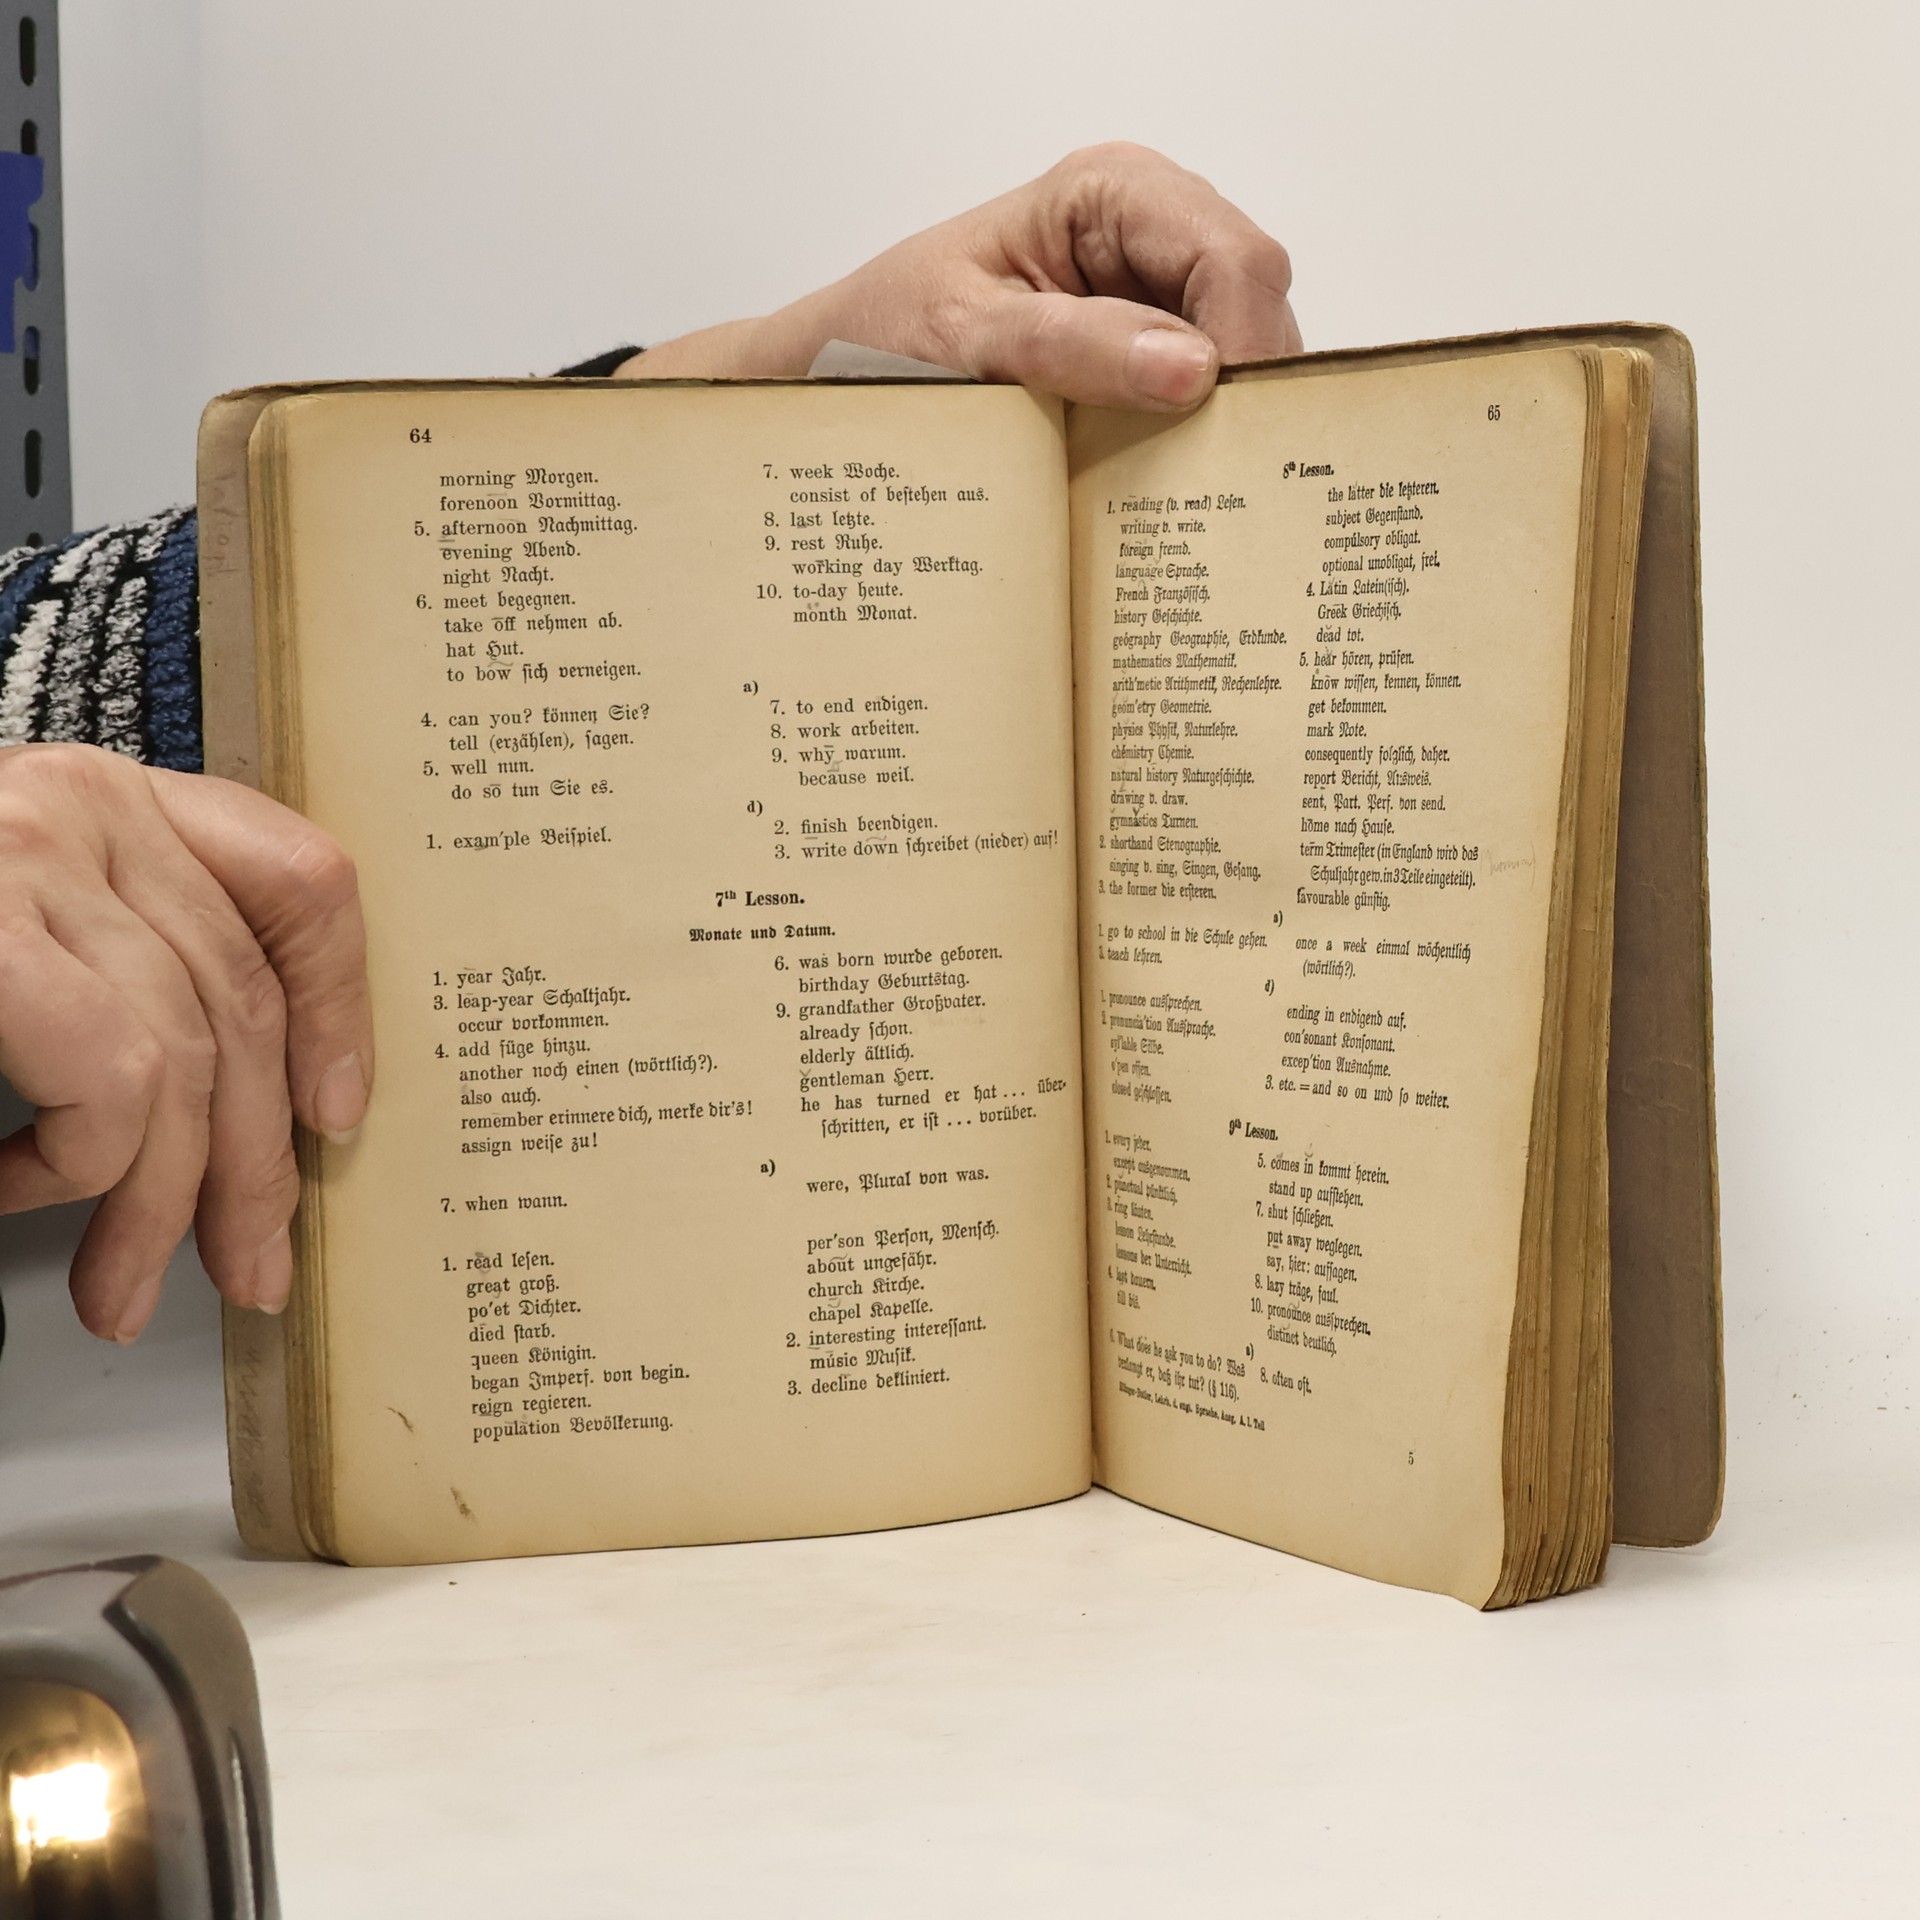 64
morning Morgen.
forenoon Vormittag.
5. afternoon Nachmittag.
evening Abend.
night Nacht.
6. meet begegnen.
take off nehmen ab.
hat Hut.
to bow sich verneigen.
7. week Woche.
consist of bestehen aus.
8. last letzte.
9. rest Ruhe.
working day Werktag.
10. to-day heute.
month Monat.
a)
4. can you? können Sie?
tell (erzählen), sagen.
5. well nun.
do so tun Sie es.
7. to end endigen.
8. work arbeiten.
9. why warum.
because weil.
d)
1. exam'ple Beispiel.
2. finish beendigen.
3. write down schreibet (nieder) auf!
7th Lesson.
Monate und Datum.
1. year Jahr.
3. leap-year Schaltjahr.
occur vorkommen.
4. add füge hinzu.
another noch einen (wörtlich?).
also auch.
remember erinnere dich, merke dir's!
assign weise zu!
6. was born wurde geboren.
birthday Geburtstag.
9. grandfather Großvater.
already schon.
elderly ältlich.
gentleman Herr.
he has turned er hat ... über-
schritten, er ist ... vorüber.
a)
7. when wann.
were, Plural von was.
1. read lesen.
great groß.
po'et Dichter.
died starb.
queen Königin.
began Imperf. von begin.
reign regieren.
population Bevölkerung.
per'son Person, Mensch.
about ungefähr.
church Kirche.
chapel Kapelle.
2. interesting interessant.
music Musik.
3. decline dekliniert.
65
8th Lesson.
1. reading (v. read) Lesen.
writing v. write.
foreign fremd.
language Sprache.
French Französisch.
history Geschichte.
geography Geographie, Erdkunde.
mathematics Mathematik.
arith'metic Arithmetik, Rechenlehre.
geom'etry Geometrie.
physics Physik, Naturlehre.
chemistry Chemie.
natural history Naturgeschichte.
drawing v. draw.
gymnastics Turnen.
2. shorthand Stenographie.
singing v. sing, Singen, Gesang.
3. the former die ersteren.
the latter die letzteren.
subject Gegenstand.
compulsory obligat.
optional unobligat, frei.
4. Latin Latein(isch).
Greek Griechisch.
dead tot.
5. hear hören, prüfen.
know wissen, kennen, können.
get bekommen.
mark Note.
consequently folglich, daher.
report Bericht, Ausweis.
sent, Part. Perf. von send.
home nach Hause.
term Trimester (in England wird das
Schuljahr gew. in 3 Teile eingeteilt).
favourable günstig.
a)
1. go to school in die Schule gehen.
3. teach lehren.
once a week einmal wöchentlich
(wörtlich?).
d)
1. pronounce aussprechen.
2. pronuncia'tion Aussprache.
syl'lable Silbe.
o'pen offen.
closed geschlossen.
ending in endigend auf.
con'sonant Konsonant.
excep'tion Ausnahme.
3. etc. = and so on und so weiter.
9th Lesson.
1. every jeder.
except ausgenommen.
2. punctual pünktlich.
3. ring läuten.
lesson Lehrstunde.
lessons der Unterricht.
4. last dauern.
till bis.
5. comes in kommt herein.
stand up aufstehen.
7. shut schließen.
put away weglegen.
say, hier: aufsagen.
8. lazy träge, faul.
10. pronounce aussprechen.
distinct deutlich.
a)
What does he ask you to do? Was
verlangt er, daß ihr tut? (§ 116).
8. often oft.
Lehrb. d. engl. Sprache, Ausg. A. I. Teil
5